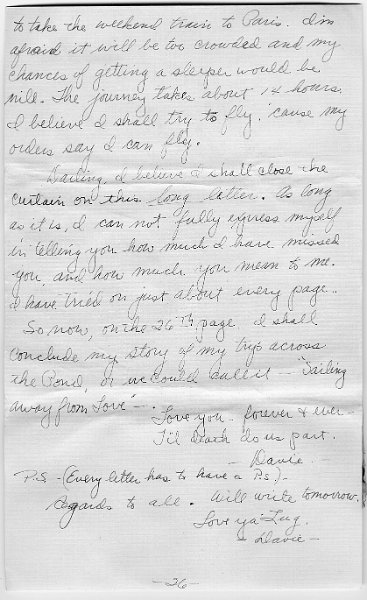 to take the weekend train to Paris. I'm
afraid it will be too crowded and my
chances of getting a sleeper would be
nill. The journey takes about 14 hours.
I believe I shall try to fly, 'cause my
orders say I can fly.
Darling, I believe I shall close the
curtain on this long letter. As long
as it is, I can not fully express myself
in telling you how much I have missed
you, and how much you mean to me.
I have tried on just about every page.
So now, on the 26th page I shall
conclude my story of my trip across
the Pond, or we could call it – "Sailing
away from Love" –.
Love you – forever & ever –
Til death do us part.
– Davie.
P.S – (Every letter has to have a P.S) –
Regards to all. Will write tomorrow.
Love ya
– Davie –
– 26 –